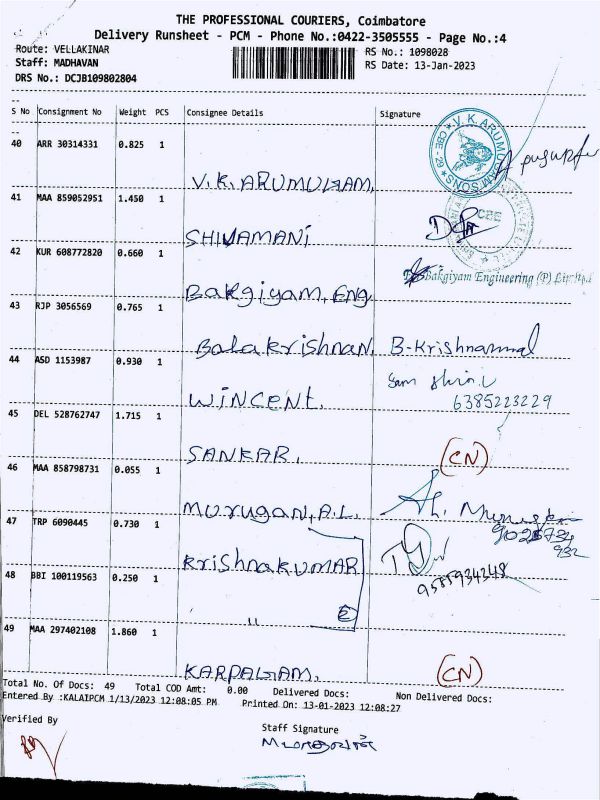 THE PROFESSIONAL COURIERS, Coimbatore
Delivery Runsheet - PCM - Phone No.:0422-3505555 - Page No.:4
Route: VELLAKINAR
RS No.: 1098028
Staff: MADHAVAN
RS Date: 13-Jan-2023
DRS No.: DCJB109802804
S No Consignment No Weight PCS Consignee Details Signature
40 ARR 30314331 0.825 1
V.K. ARUMUGAM.
V.K.ARUMUGAM SONS CBE-29
41 MAA 859052951 1.450 1
SHIVAMANI
CBE
42 KUR 608772820 0.660 1
Bakgiyam Engineering (P) Limited
Bakgiyam, Eng
43 RJP 3056569 0.765 1
Balakrishnan. B-Krishnammal
44 ASD 1153987 0.930 1
WINCENT. 6385223229
45 DEL 528762747 1.715 1
SANKAR. (CN)
46 MAA 858798731 0.055 1
Murugan, A.L.
47 TRP 6090445 0.730 1
KrishnaKUMAR
9585934348
48 BBI 100119563 0.250 1
" 2
49 MAA 297402108 1.860 1
KARPAGAM. (CN)
Total No. Of Docs: 49 Total COD Amt: 0.00 Delivered Docs: Non Delivered Docs:
Entered By :KALAIPCM 1/13/2023 12:08:05 PM Printed On: 13-01-2023 12:08:27
Verified By
Staff Signature